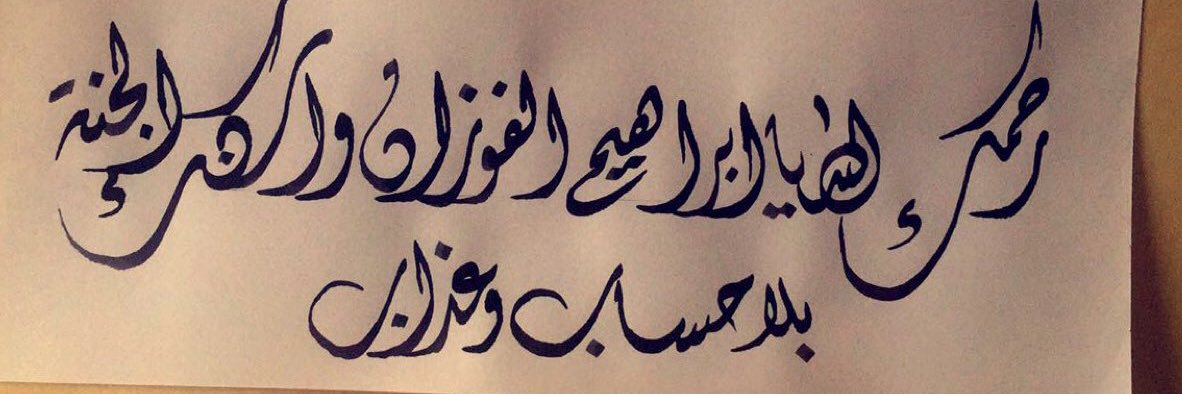 رحمك الله يا ابراهيم الفوزان واسكنك الجنة
بلا حساب وعذاب